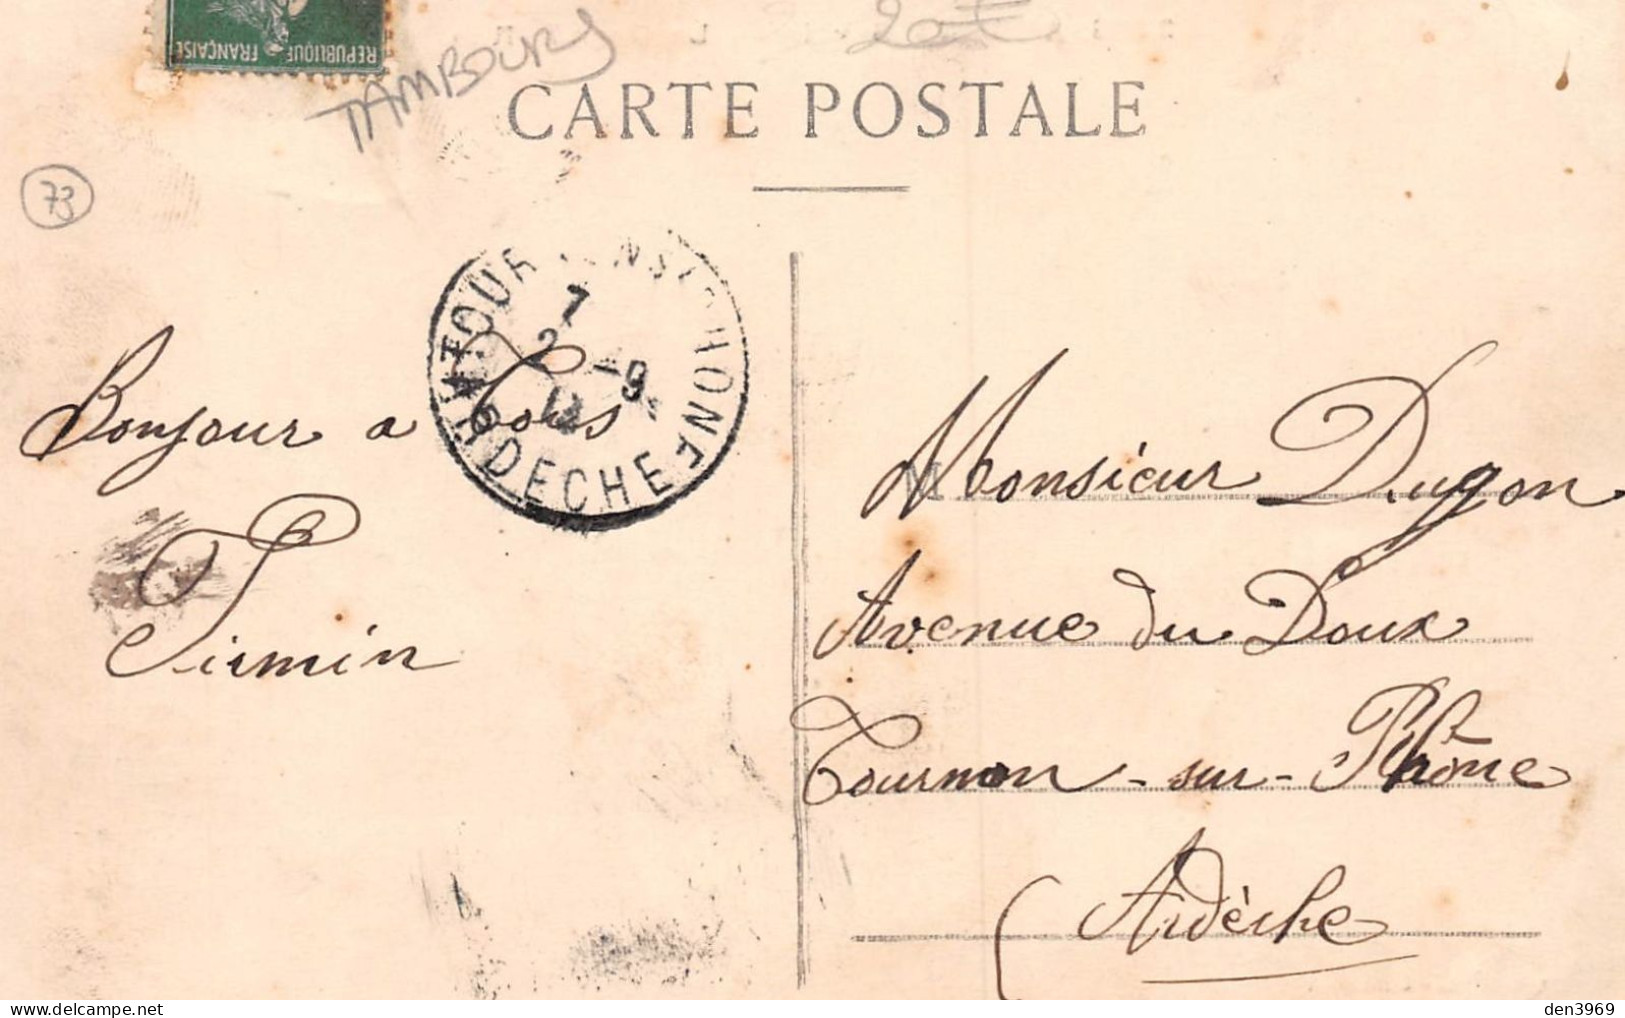 REPUBLIQUE FRANÇAISE
TAMBOURS
CARTE POSTALE
73
7
2 -9
ARDECHE
Bonjour a Tous
Firmin
Monsieur Dugon
Avenue du Doux
Tournon-sur-Rhône
(Ardèche
den3969